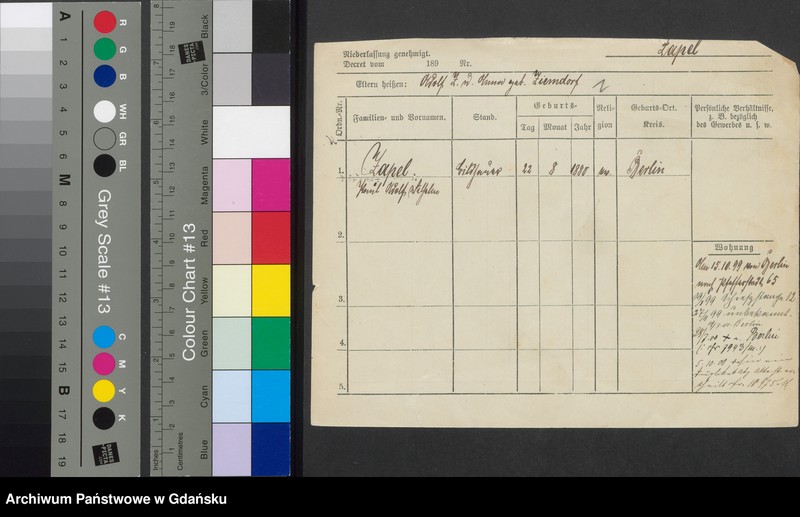 Zapel
Niederlassung genehmigt.
Decret vom 189 Nr.
Eltern heißen: Adolf Z. u. Anna geb. Ziemdorf
Ordn.-Nr.
Familien- und Vornamen.
Stand.
Geburts-
Tag Monat Jahr
Reli-
gion
Geburts-Ort.
Kreis.
Persönliche Verhältnisse,
z. B. bezüglich
des Gewerbes u. s. w.
1. Zapel. 22 8 1880 ev. Berlin
Paul Adolf Wilhelm
2.
3.
4.
5.
Wohnung
Am 15.10.99 von Berlin
nach Pfefferstadt 65
unbekannt.
Berlin
Berlin
A 1 2 3 4 5 6 M 8 9 10 11 12 13 14 15 B 17 18 19
R G B WH GR BL
Grey Scale #13
C M Y K
DANES PICTA
Colour Chart #13
Inches Centimetres
Blue Cyan Green Yellow Red Magenta White 3/Color Black
DANES PICTA .COM
Archiwum Państwowe w Gdańsku